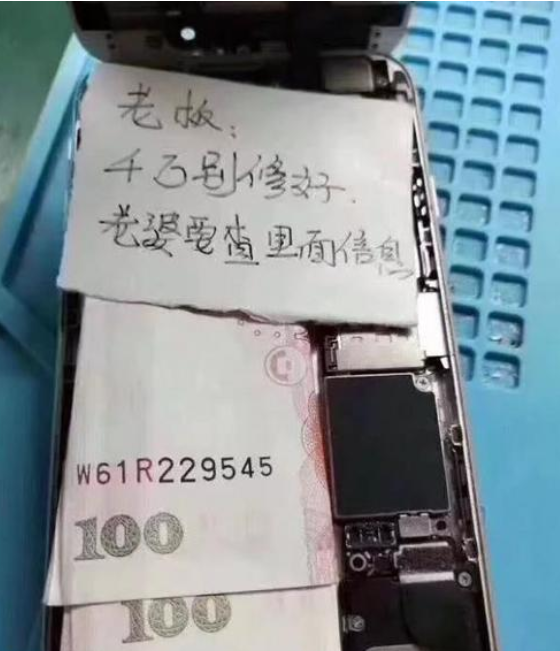 老板：
千万别修好.
老婆要查里面信息
W61R229545
100
100